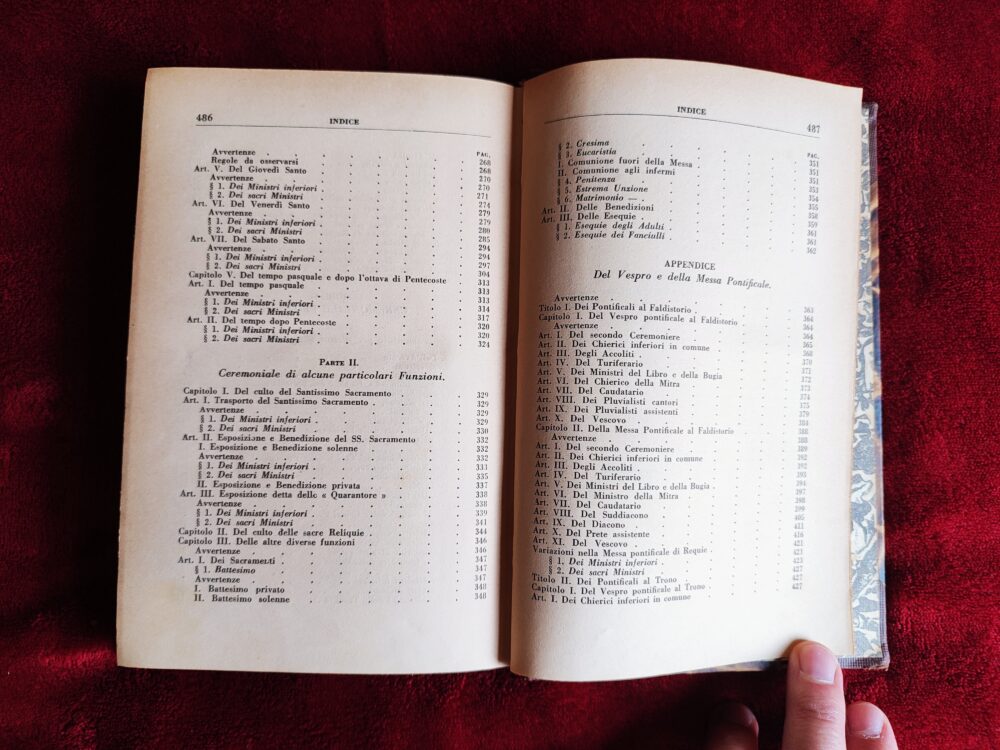 486
INDICE
PAG.
Avvertenze . 268
Regole da osservarsi 268
Art. V. Del Giovedì Santo 270
Avvertenze . 270
§ 1. Dei Ministri inferiori . 271
§ 2. Dei sacri Ministri 274
Art. VI. Del Venerdì Santo 279
Avvertenze . 279
§ 1. Dei Ministri inferiori . 280
§ 2. Dei sacri Ministri 285
Art. VII. Del Sabato Santo 294
Avvertenze . 294
§ 1. Dei Ministri inferiori . 297
§ 2. Dei sacri Ministri 304
Capitolo V. Del tempo pasquale e dopo l'ottava di Pentecoste 313
Art. I. Del tempo pasquale 313
Avvertenze . 313
§ 1. Dei Ministri inferiori . 314
§ 2. Dei sacri Ministri 317
Art. II. Del tempo dopo Pentecoste 320
§ 1. Dei Ministri inferiori . 320
§ 2. Dei sacri Ministri 324
Parte II.
Ceremoniale di alcune particolari Funzioni.
Capitolo I. Del culto del Santissimo Sacramento 329
Art. I. Trasporto del Santissimo Sacramento . 329
Avvertenze 329
§ 1. Dei Ministri inferiori . 329
§ 2. Dei sacri Ministri 330
Art. II. Esposizione e Benedizione del SS. Sacramento 332
I. Esposizione e Benedizione solenne 332
Avvertenze 332
§ 1. Dei Ministri inferiori . 333
§ 2. Dei sacri Ministri 335
II. Esposizione e Benedizione privata 337
Art. III. Esposizione detta delle « Quarantore » 338
Avvertenze 338
§ 1. Dei Ministri inferiori . 339
§ 2. Dei sacri Ministri 341
Capitolo II. Del culto delle sacre Reliquie 344
Capitolo III. Delle altre diverse funzioni 346
Avvertenze 346
Art. I. Dei Sacramenti 347
§ 1. Battesimo 347
Avvertenze 347
I. Battesimo privato 348
II. Battesimo solenne 348
INDICE
487
PAG.
§ 2. Cresima 351
§ 3. Eucaristia 351
I. Comunione fuori della Messa 351
II. Comunione agli infermi 353
§ 4. Penitenza 354
§ 5. Estrema Unzione 355
§ 6. Matrimonio — 358
Art. II. Delle Benedizioni 359
Art. III. Delle Esequie 361
§ 1. Esequie degli Adulti 361
§ 2. Esequie dei Fanciulli 362
APPENDICE
Del Vespro e della Messa Pontificale.
Avvertenze 363
Titolo I. Dei Pontificali al Faldistorio 364
Capitolo I. Del Vespro pontificale al Faldistorio 364
Avvertenze 364
Art. I. Del secondo Ceremoniere 365
Art. II. Dei Chierici inferiori in comune 368
Art. III. Degli Accoliti 370
Art. IV. Del Turiferario 371
Art. V. Dei Ministri del Libro e della Bugia 372
Art. VI. Del Chierico della Mitra 373
Art. VII. Del Caudatario 374
Art. VIII. Dei Pluvialisti cantori 375
Art. IX. Dei Pluvialisti assistenti 379
Art. X. Del Vescovo 384
Capitolo II. Della Messa Pontificale al Faldistorio 388
Avvertenze 388
Art. I. Del secondo Ceremoniere 389
Art. II. Dei Chierici inferiori in comune 392
Art. III. Degli Accoliti 392
Art. IV. Del Turiferario 393
Art. V. Dei Ministri del Libro e della Bugia 394
Art. VI. Del Ministro della Mitra 397
Art. VII. Del Caudatario 398
Art. VIII. Del Suddiacono 399
Art. IX. Del Diacono 405
Art. X. Del Prete assistente 411
Art. XI. Del Vescovo 416
Variazioni nella Messa pontificale di Requie 421
§ 1. Dei Ministri inferiori 423
§ 2. Dei sacri Ministri 423
Titolo II. Dei Pontificali al Trono 427
Capitolo I. Del Vespro pontificale al Trono 427
Art. I. Dei Chierici inferiori in comune 427